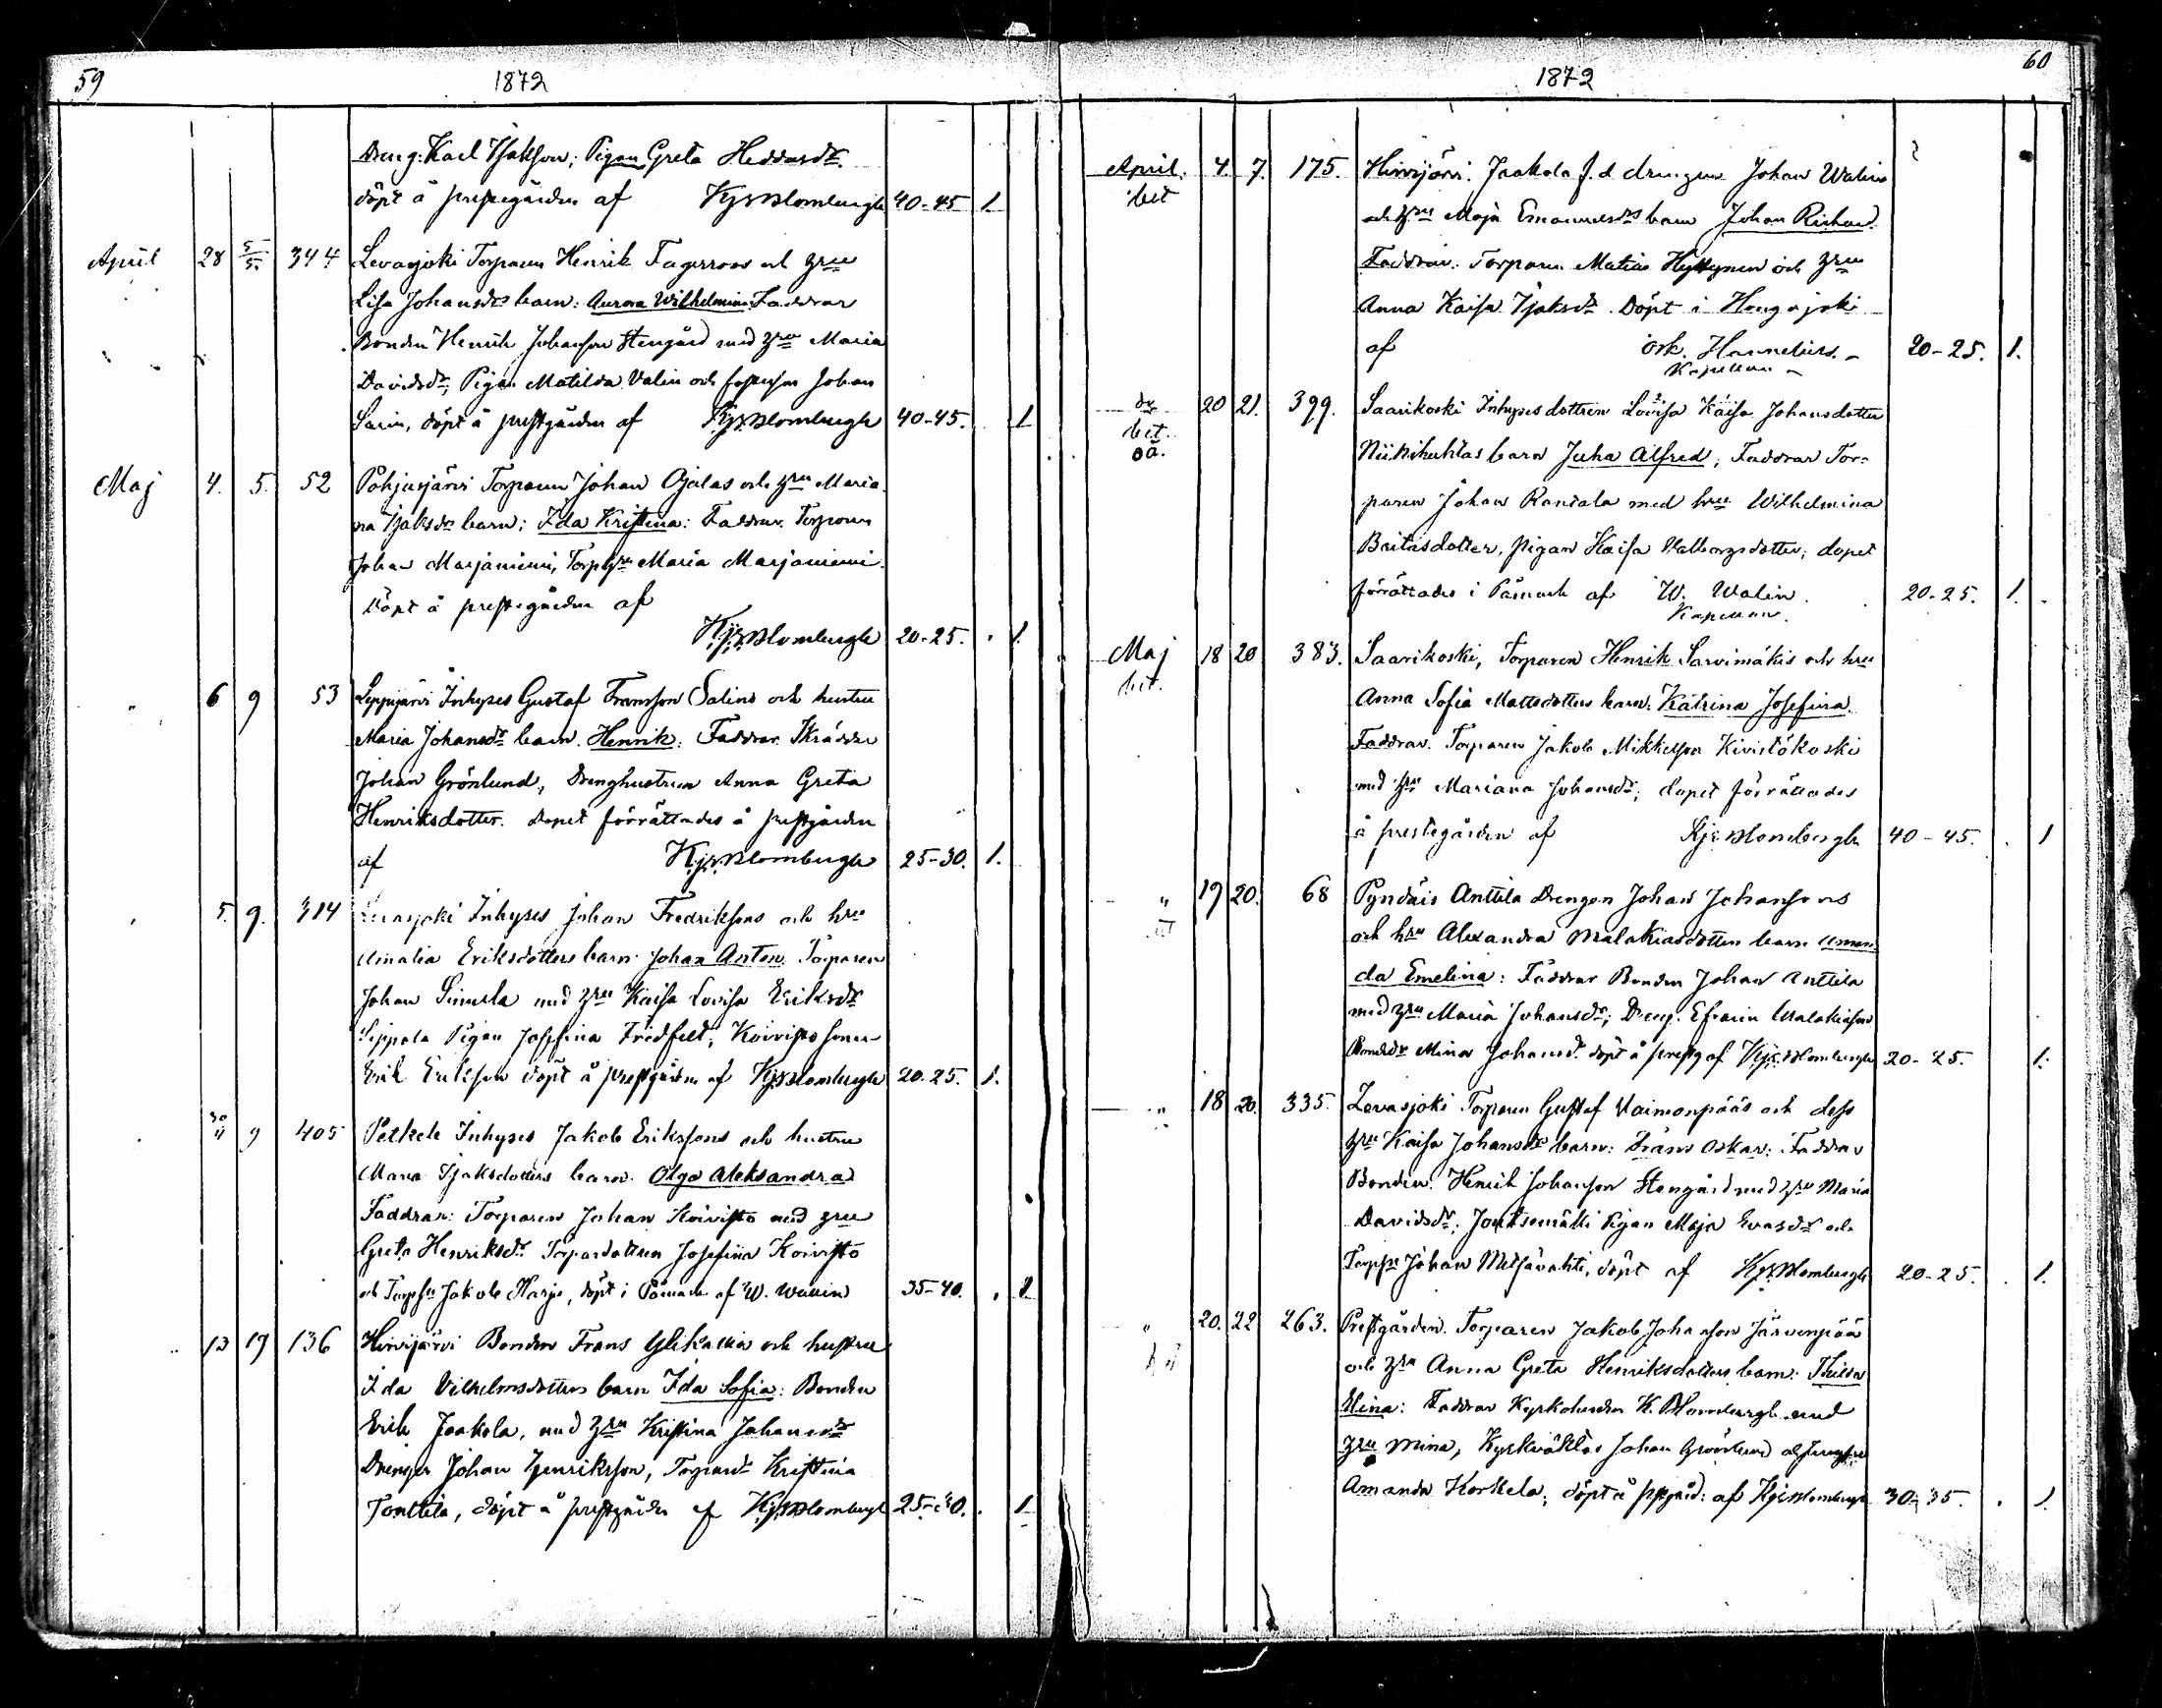 59
1872
Dreng: Karl Isaksson; Pigan Greta Heddasdr.
döpt å prestegården af Kyrk Blombergh 40-45 1.
April 28 5/5. 344 Levasjoki Torparen Henrik Fagerroos och hru
Lisa Johansdrs barn: Aurora Wilhelmina. Faddrar
Bonden Henrik Johansson Stengård med hru Maria
Davidsdr; Pigan Matilda Valin och Johan
döpt å prestgården af Kyrk Blombergh 40-45. 1
Maj 4. 5. 52 Pohjusjärvi Torparen Johan Ojalas och hru Maria-
na Isaksdrs barn; Ida Kristina: Faddrar. Torparen
Johan Marjaniemi, Torphru Maria Marjaniemi.
Döpt å prestegården af
Kyrk Blombergh 20-25. 1.
" 6 9 53 Leppijärvi Inhyses Gustaf Fransson Salins och hustru
Maria Johansdr barn. Henrik: Faddrar. Skräddar
Johan Grönlund, Drenghustrun Anna Greta
Henriksdotter. Dopet förrättades å prestgården
af Kyrk. Blombergh 25-30. 1.
" 5. 9. 314 Levasjoki Inhyses Johan Fredrikssons och hru
Amalia Eriksdotters barn. Johan Anton. Torparen
Johan med hru Kaisa Lovisa Eriksdr
Seppala Pigan Josefina Fridfelt; Koivisto sonen
Erik Eriksson döpt å prestgården af Kyrk Blombergh 20-25. 1.
9 405 Petkele Inhyses Jakob Erikssons och hustru
Maria Isaksdotters barn. Olga Aleksandra
Faddrar: Torparen Johan Koivisto med hru
Greta Henriksdr Torpardottren Josefina Koivisto
och Jakob Harju, döpt i Påmark af W. Wallin 35-40. 1.
" 13 19 136 Hirvijärvi Bonden Frans Ylikallia och hustru
Ida Vilhelmsdotters barn Ida Sofia: Bonden
Erik Jaakola, med hru Kristina Johansdr
Drengen Johan Henriksson, Torpardr Kristina
Tonttila, döpt å prestgården af Kyrk Blombergh 25-30. 1
60
1872
April. 4. 7. 175. Hirvijärvi. Jaakola f.d drengen Johan Walins
bet och hru Maja Emanuelsdrs barn Johan Richard.
Faddrar: Torparen Matias Hyttynen och hru
Anna Kaisa Isaksdr. Döpt i Hongojoki
af Hannelius. 20-25. 1.
Kapellan
do 20 21. 399. Saarikoski Inhyses dottren Lovisa Kaisa Johansdotter
bet. Niinihuhtas barn Juha Alfred; Faddrar Tor-
oä. paren Johan Rantala med hru Wilhelmina
Britasdotter, pigan Kaisa Valborgsdotter; dopet
förrättades i Påmark af W. Walin 20-25. 1.
Kapellan.
Maj 18 20 383. Saarikoski, Torparen Henrik Sarvimäkis och hru
bet. Anna Sofia Mattsdotters barn. Katrina Josefina.
Faddrar. Torparen Jakob Mikkelsson Kivistökoski
med hru Mariana Johansdr; dopet förrättades
å prestegården af Kyrk Blombergh 40-45. 1
" 19 20. 68 Pyndäis Anttila Drengen Johan Johanssons
och hru Alexandra Malakiasdotters barn Aman-
da Emelina: Faddrar Bonden Johan Anttila
med hru Maria Johansdr; Dreng. Efraim Malakiasson
Bondedr Mina Johansdr. döpt å prestg af Kyrk. Blombergh 20-25. 1.
" 18 20. 335. Levasjoki Torparen Gustaf Vaimonpääs och dess
hru Kaisa Johansdrs barn: Frans Oskar: Faddrar
Bonden. Henrik Johansson Stengård med hru Maria
Davidsdr; Pigan Maja Evasdr och
Johan Metsävahti, döpt af Kyrk Blombergh 20-25. 1.
" 20. 22 263. Prestgården. Torparen Jakob Johansson Järvenpää
och hru Anna Greta Henriksdotters barn: Thilda
Elina: Faddrar Kyrkoherden K. Blombergh med
hru Mina, Kyrkväktar Johan Grönlund
Amanda Korkela; döpt å prstgård: af Kyrk Blombergh 30-35. 1.